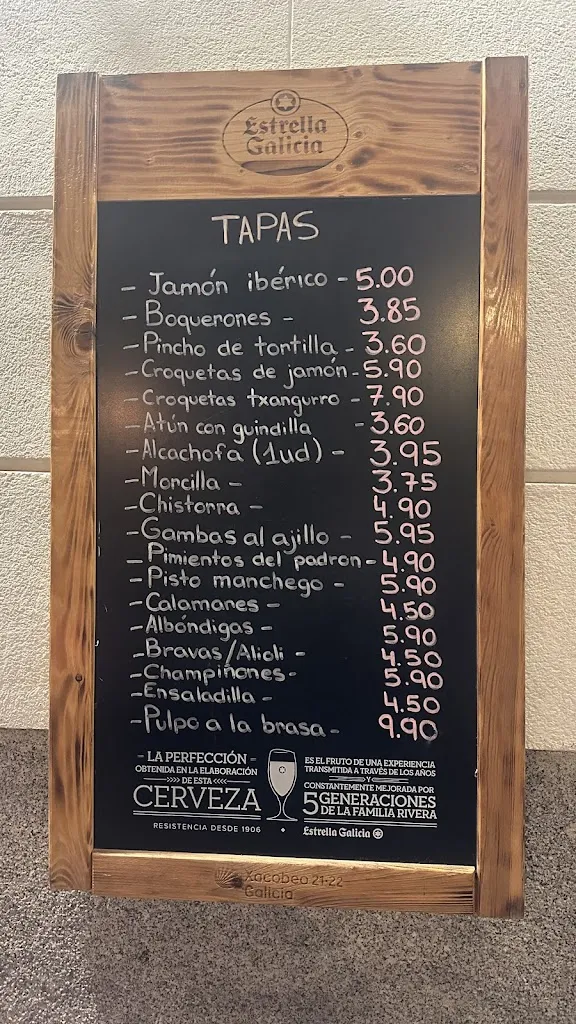 Estrella
Galicia
TAPAS
- Jamón ibérico - 5.00
- Boquerones - 3.85
- Pincho de tortilla - 3.60
- Croquetas de jamón - 5.90
- Croquetas txangurro - 7.90
- Atún con guindilla - 3.60
- Alcachofa (1ud) - 3.95
- Morcilla - 3.75
- Chistorra - 4.90
- Gambas al ajillo - 5.95
- Pimientos del padron - 4.90
- Pisto manchego - 5.90
- Calamares - 4.50
- Albóndigas - 5.90
- Bravas/Alioli - 4.50
- Champiñones - 5.90
- Ensaladilla - 4.50
- Pulpo a la brasa - 9.90
- LA PERFECCIÓN -
OBTENIDA EN LA ELABORACIÓN
DE ESTA
CERVEZA
RESISTENCIA DESDE 1906
ES EL FRUTO DE UNA EXPERIENCIA
TRANSMITIDA A TRAVÉS DE LOS AÑOS
Y
CONSTANTEMENTE MEJORADA POR
5 GENERACIONES
DE LA FAMILIA RIVERA
Estrella Galicia
Xacobeo 21·22
Galicia